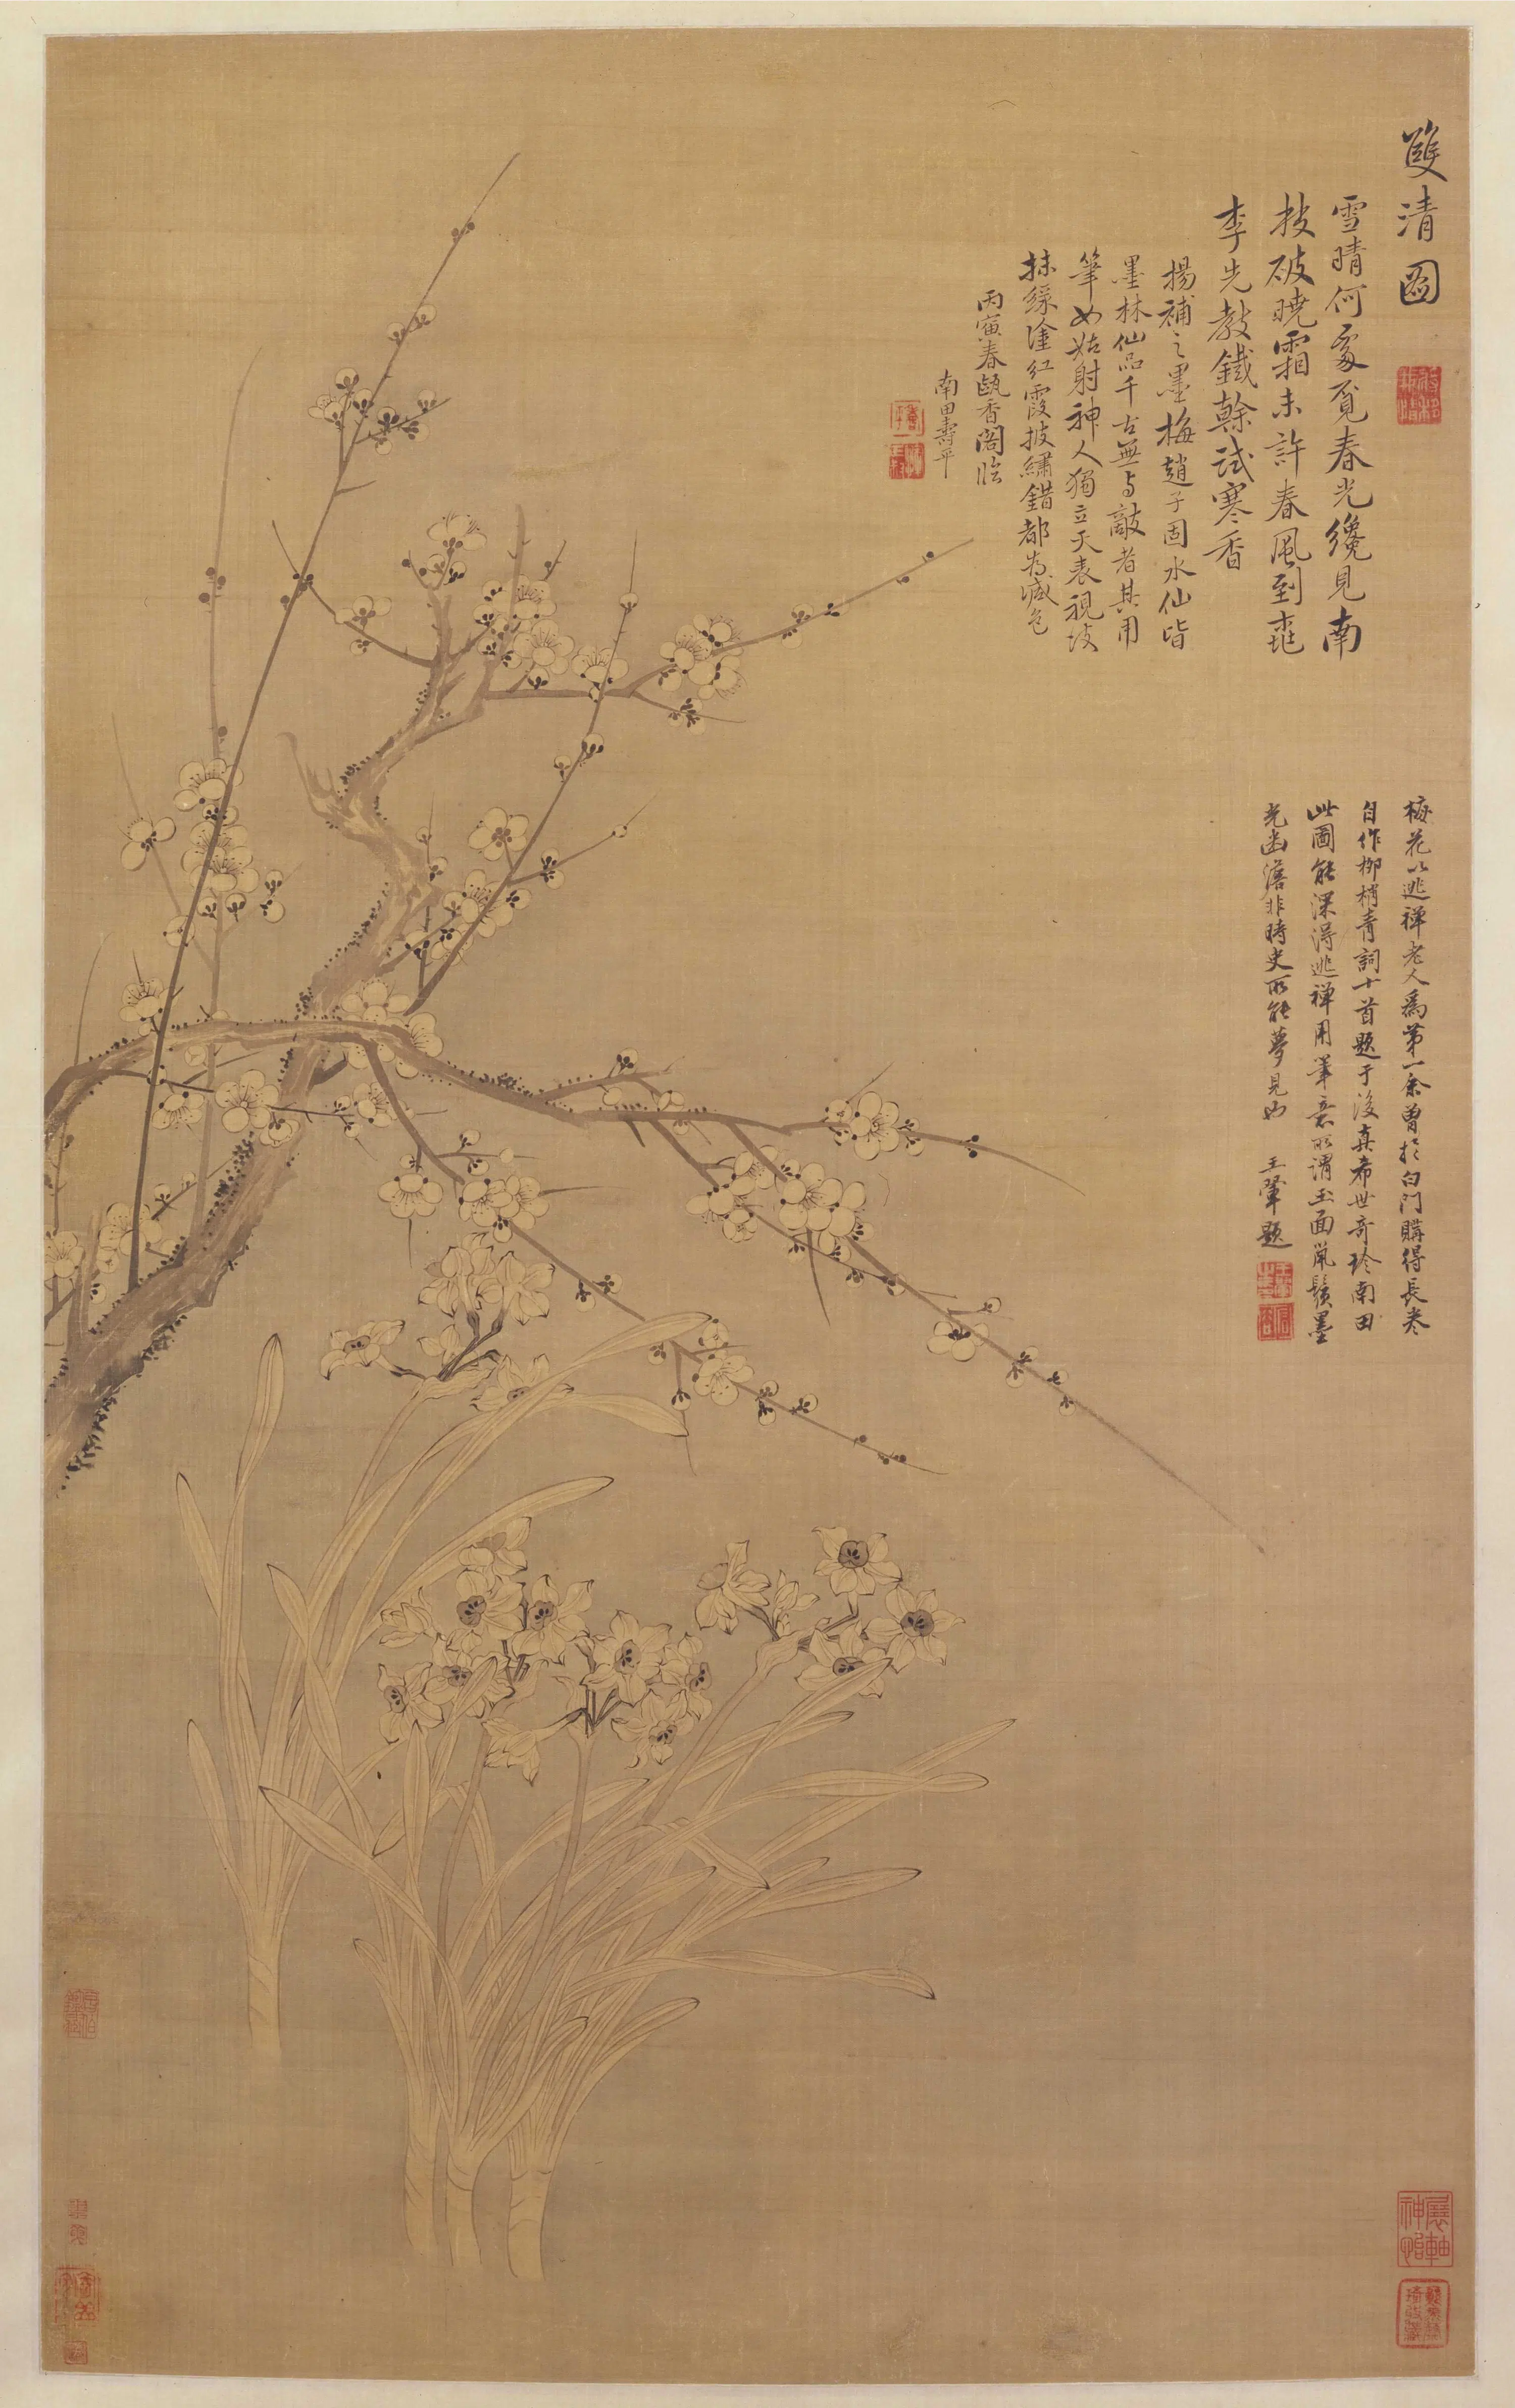 雙清圖
雪晴何處覓春光纔見南
枝破曉霜未許春風到桃
李先教鐵幹試寒香
揚補之墨梅趙子固水仙皆
墨林仙品千古無與敵者其用
筆如姑射神人獨立天表視彼
抹綠塗紅霞披繡錯都為減色
丙寅春甌香閣臨
南田壽平
梅花以逃禪老人為第一余曾於白門購得長卷
自作柳梢青詞十首題于後真希世奇珍南田
此圖能深得逃禪用筆意所謂玉面鼠鬚墨
光幽澹非時史所能夢見也 王翬題